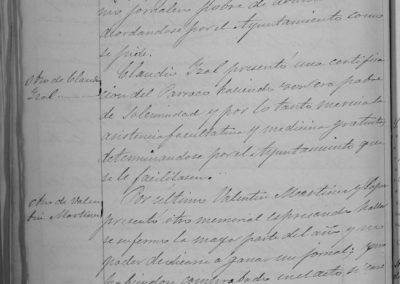 mo jornalero pobre de
acordandose por el Ayuntamiento como
se pide.
Otro de Claudio
Izal
Claudio Izal presentó una certifica
cion del Parroco haciendo ver era pobre
de Solemnidad y por lo tanto merecia la
asistencia facultativa y medicina gratuita
determinandose por el Ayuntamiento que
se le facilitasen.
Otro de Valen
tin Martinez
Por ultimo Valentin Martinez y
presentó otro memorial espresando hallar
se enfermo la mayor parte del año y no
poder dedicarse a ganar un jornal; y
habiendose comprobado en el acto, si